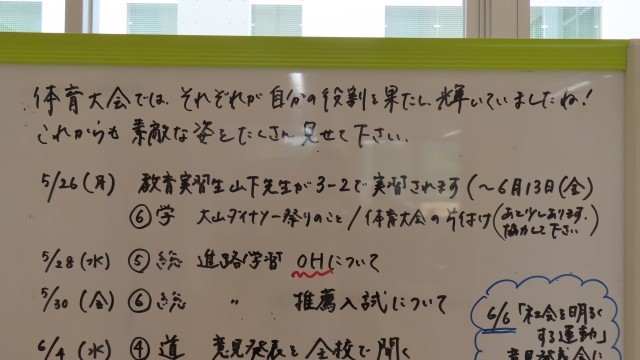 体育大会では、それぞれが自分の役割を果たし、輝いていましたね!
これからも素敵な姿をたくさん見せて下さい。
5/26(月) 教育実習生山下先生が3-2で実習されます(〜6月13日(金)
⑥学 大山ダイナソー祭りのこと/体育大会の片付け(あと少しあります。協力して下さい
5/28(水) ⑤総 進路学習 OHについて
5/30(金) ⑥総 〃 推薦入試について
6/4(水) ④道 意見発表を全校で聞く
6/6「社会を明るく
する運動」
意見発表会に